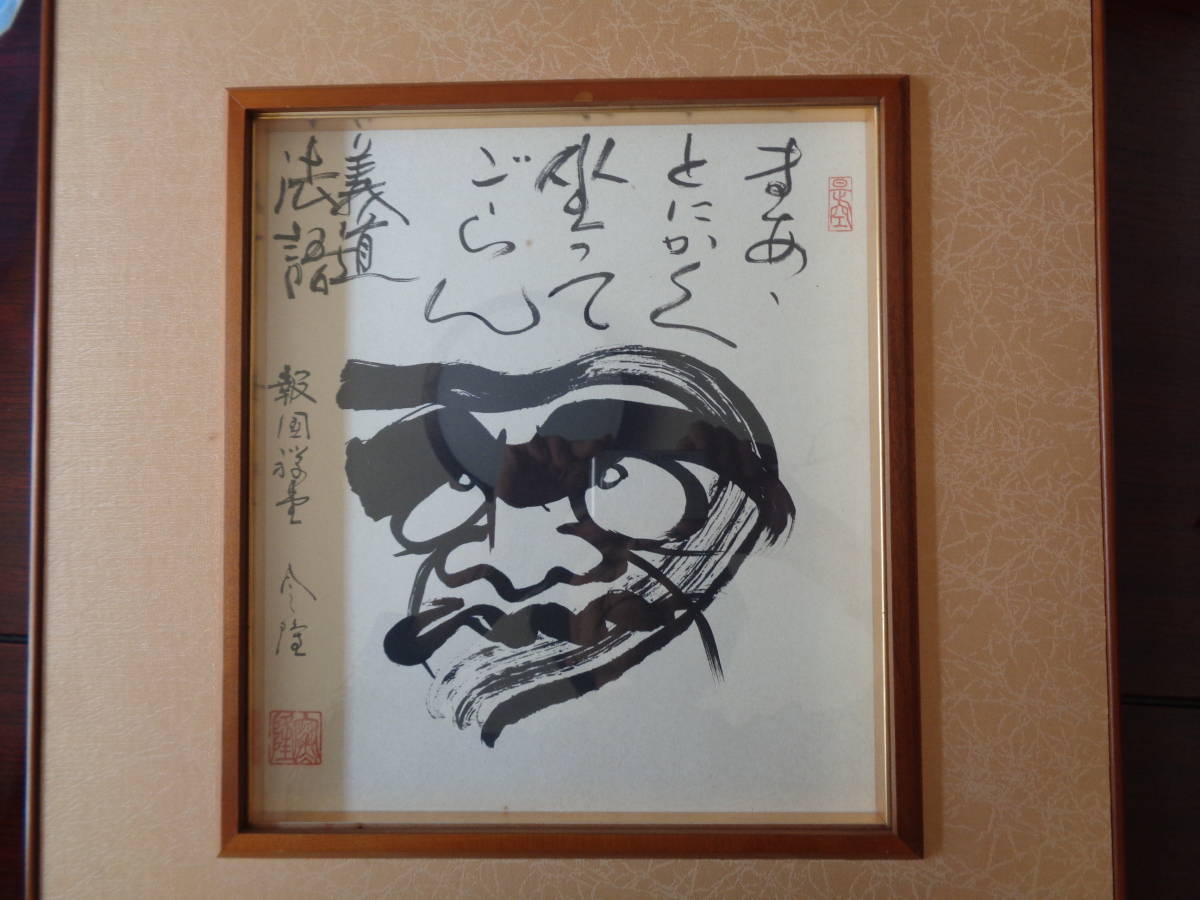 まあ、
とにかく
坐って
ごらん
義道
法語
報国禅堂